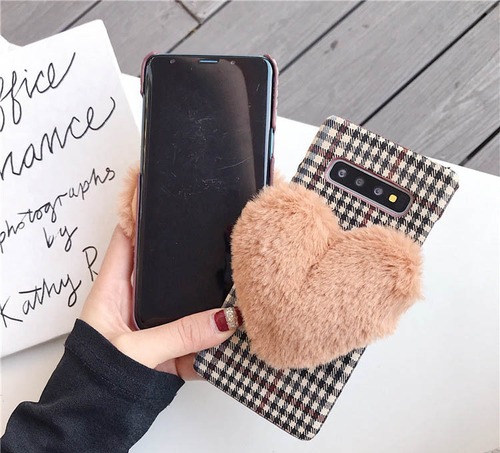 ffice
mance
photographs
by
Kathy R